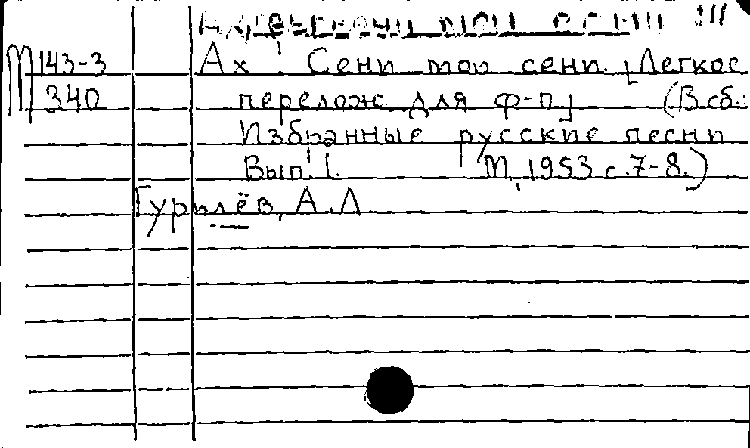 М 143-3 Ах! Сени мои сени. [Легкое
340 перелож. для ф-п] (В сб.:
Избранные русские песни
Вып. 1. М, 1953 с. 7-8.)
Гурилёв, А.Л